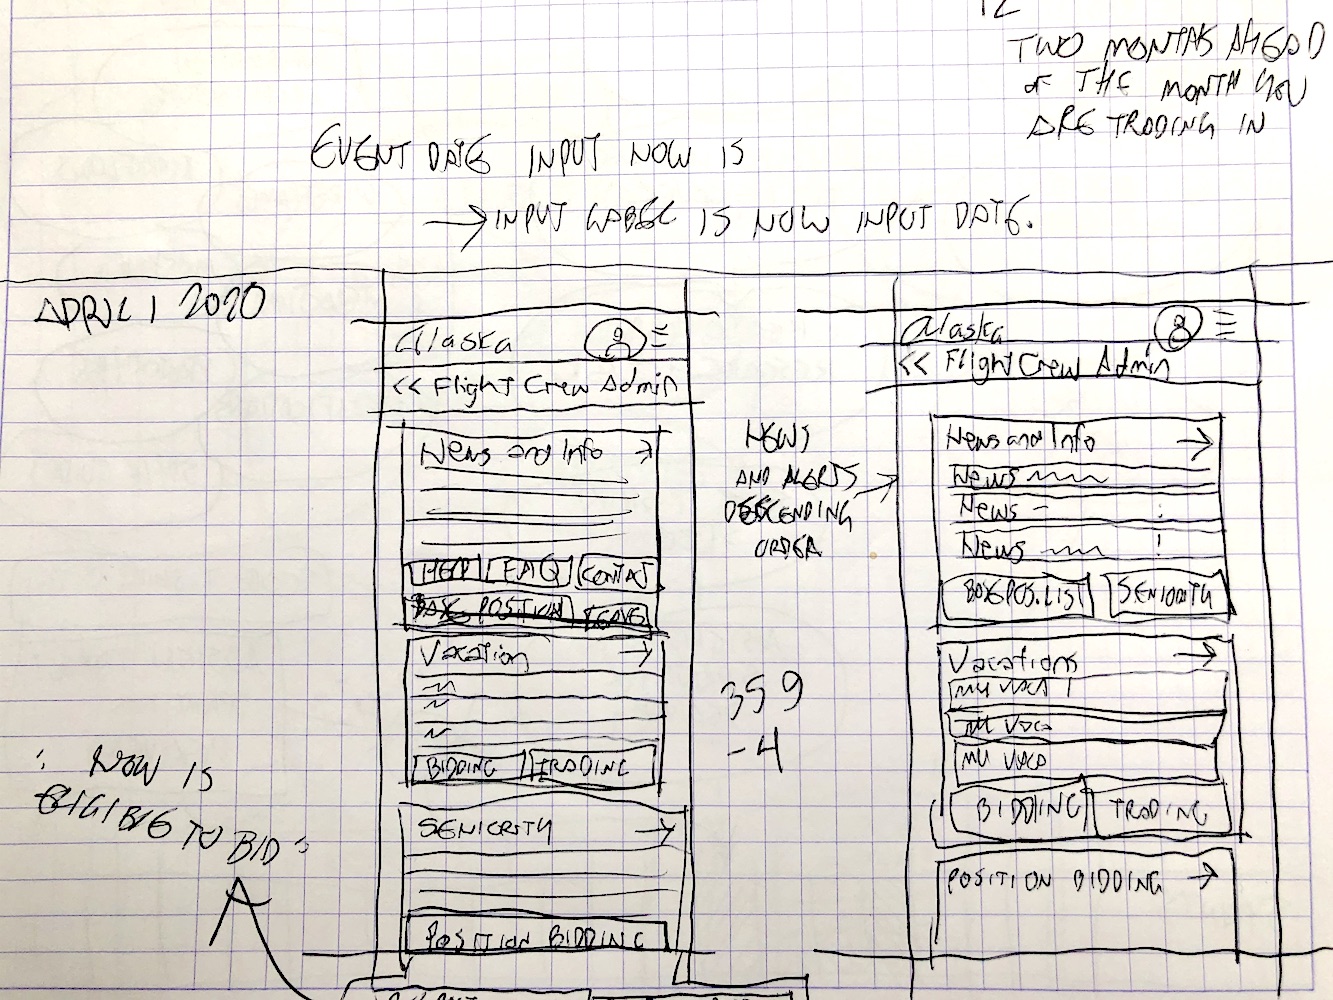 12
TWO MONTHS AHEAD
OF THE MONTH YOU
ARE TRADING IN
EVENT DATE INPUT NOW IS
→ INPUT LABEL IS NOW INPUT DATE.
APRIL 1 2020
Alaska
<< Flight Crew Admin
News and Info →
HELP FAQ CONTACT
BASE POSITION LEAVES
Vacation →
BIDDING TRADING
SENIORITY →
POSITION BIDDING
NEWS
AND ALERTS
DESCENDING
ORDER
359
-4
: NOW IS
ELIGIBLE TO BID :
Alaska
<< Flight Crew Admin
News and Info →
News
News -
News
BASE POS. LIST SENIORITY
Vacations →
MY VACA
MY VACA
MY VACA
BIDDING TRADING
POSITION BIDDING →